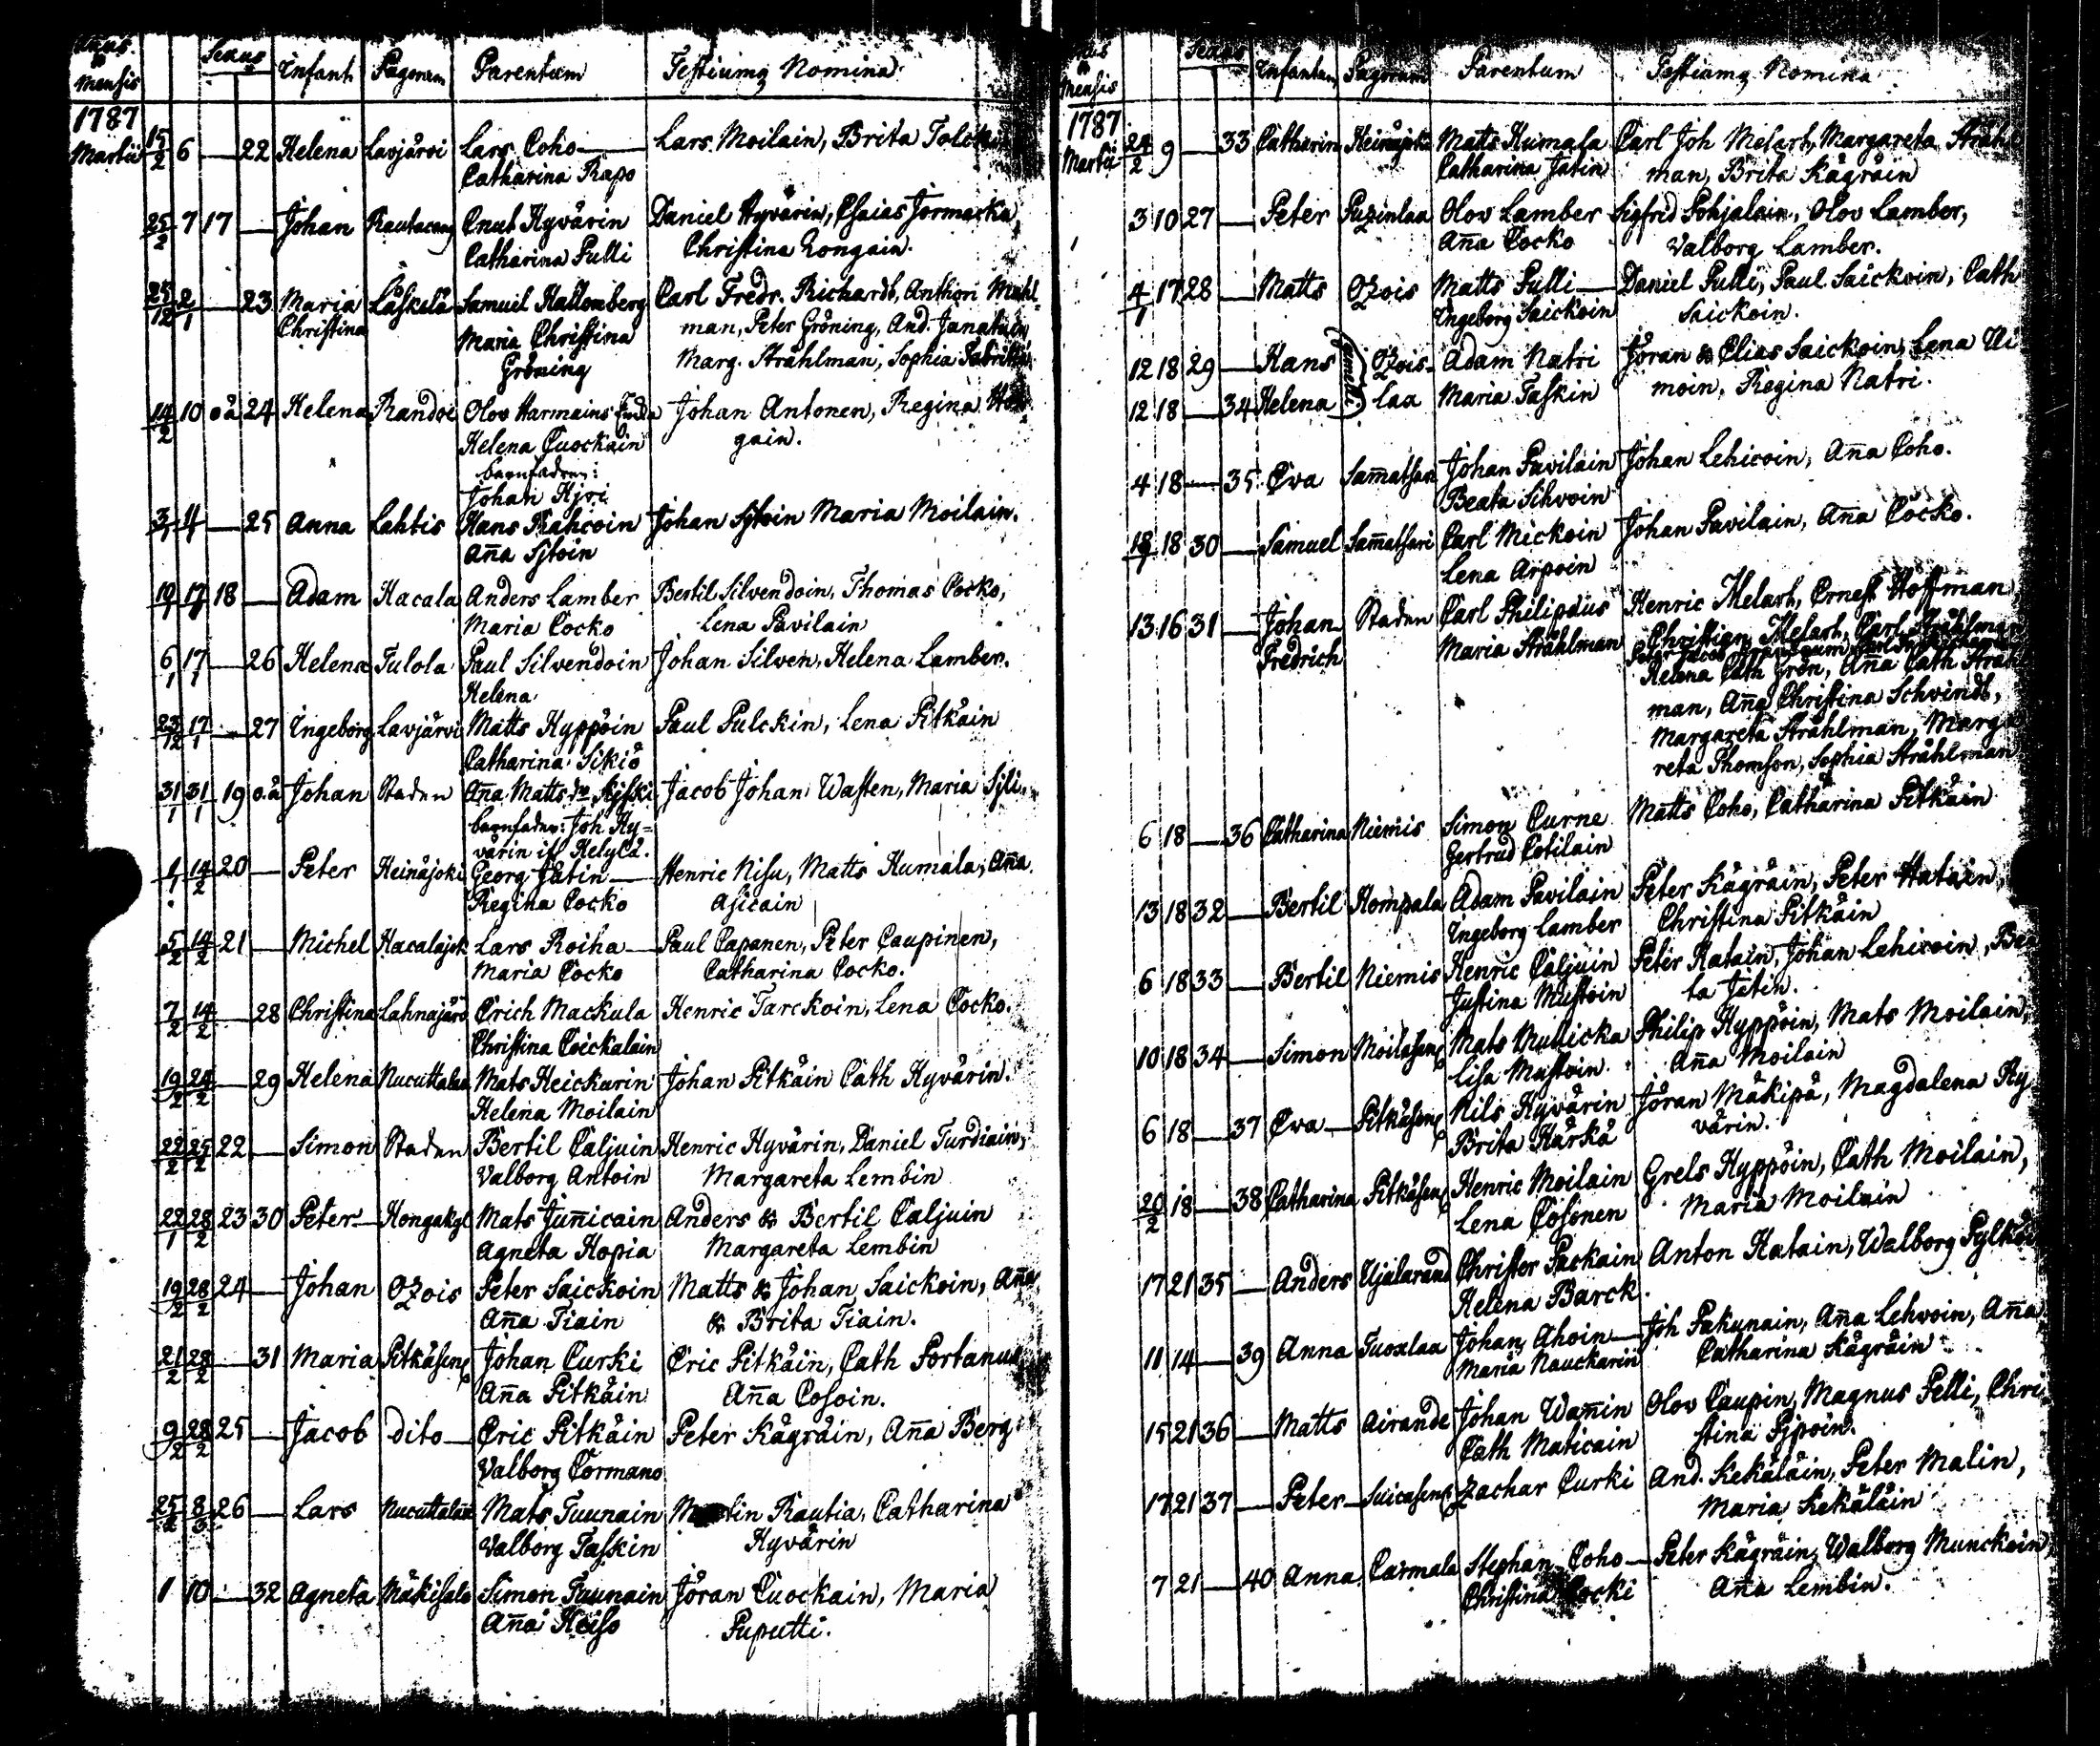 Mensis Sexus Infant Pagorum Parentum Testiumq Nomina
1787
Martii 15/2 6 — 22 Helena Lavjärvi Lars Coho — Lars Moilain, Brita
Catharina Rapo
25/2 7 17 — Johan Cnut Hyvärin Daniel Hyvärin, Esaias Jormacka
Catharina Pulli Christina Rongain.
25/12 2/1 — 23 Maria Läskelä Samuel Hallonberg Carl Fredr. Richardt, Anthon
Christina Maria Christina man, Peter Gröning, And.
Gröning Marg. Stråhlman, Sophia
14/2 10 oä 24 Helena Randoi Olov Harmains Johan Antonen, Regina
Helena Cuockain gain.
barnfadren:
Johan
3/1 4/1 — 25 Anna Lahtis Hans Rahcoin Johan Sjtoin Maria Moilain.
Aña Sjtoin
17/1 18 — Adam Hacala Anders Lamber Bertil Silvendoin, Thomas Cocko,
Maria Cocko Lena Pavilain
6/1 17/1 — 26 Helena Tulola Paul Silvendoin Johan Silven, Helena Lamber.
Helena
23/12 17/1 — 27 Ingeborg Lavjärvi Matts Hyppöin Paul Pulckin, Lena Pitkäin
Catharina Sikiö
31/1 31/1 19 oä Johan Staden Aña Matts dr Jacob Johan Wasten, Maria
barnfader: Joh. Hy-
värin if Helylä.
1/1 14/2 20 — Peter Heinäjoki Georg Jätin — Henric Nisu, Matts Humala, Aña
Regina Cocko Asicain
5/2 14/2 21 — Michel Hacalajok Lars Roiha — Paul Capanen, Peter Caupinen,
Maria Cocko Catharina Cocko.
7/2 14/2 — 28 Christina Lahnajärv Erich Mackula Henric Tarckoin, Lena Cocko.
Christina Coickalain
19/2 24/2 — 29 Helena Nucuttalax Mats Heickurin Johan Pitkäin Cath Hyvärin.
Helena Moilain
22/2 25/2 22 — Simon Staden Bertil Caljuin Henric Hyvärin, Daniel Turdiain,
Valborg Antoin Margareta Lembin
22/1 28/2 23 30 Peter — Mats Juñicain Anders & Bertil Caljuin
Agneta Hopia Margareta Lembin
19/2 28/2 24 — Johan Ozois Peter Saickoin Matts & Johan Saickoin, Aña
Aña Tiain & Brita Tiain.
21/2 28/2 — 31 Maria Pitkäsens Johan Curki Eric Pitkäin, Cath
Aña Pitkäin Aña Cosoin.
9/2 28/2 25 — Jacob dito — Eric Pitkäin Peter Kägräin, Aña Berg
Valborg Cormano
25/2 8/3 26 — Lars Nucuttalax Mats Tuunain Rautia, Catharina
Valborg Taskin Hyvärin
1 10 — 32 Agneta Mäkisalo Simon Tuunain Jöran Cuockain, Maria
Aña Heiso Puputti.
Mensis Infantum Pagorum Parentum Testiumq Nomina
1787
Martii 24/2 9 — 33 Catharin Heinäjoki Matts Humala Carl Joh Melart, Margareta Stråhl
Catharina Jätin man, Brita Kägräin
3 10 27 — Peter Puzinlax Olov Lamber Sigfrid Pohjalain, Olov Lamber,
Aña Cocko Valborg Lamber.
4/1 17 28 — Matts Ozois Matts Pulli — Daniel Pulli, Paul Saickoin, Cath
Ingeborg Saickoin Saickoin.
12 18 29 — Hans gemelli Ozois- Adam Natri Jöran & Elias Saickoin, Lena Ui
12 18 — 34 Helena lax Maria Taskin moin, Regina Natri.
4 18 — 35 Eva Sam̃atsari Johan Pavilain Johan Lehicoin, Aña Coho.
Beata Sihvoin
18 30 — Samuel Sam̃atsari Carl Mickoin Johan Pavilain, Aña Cocko.
Lena Arpoin
13 16 31 — Johan Staden Carl Philipdus Henric Melart, Ernest Hoffman
Fredrich Maria Stråhlman Christian Melart, Carl Stråhlman
Helena Cath Grön, Aña Cath Stråhl
man, Aña Christina Schvindt,
Margareta Stråhlman, Marga
reta Thomson, Sophia Stråhlman
6 18 — 36 Catharina Niemis Simon Curne Matts Coho, Catharina Pitkäin
Gertrud Cotilain
13 18 32 — Bertil Hompala Adam Pavilain Peter Kägräin, Peter Hatain,
Ingeborg Lamber Christina Pitkäin
6 18 33 — Bertil Niemis Henric Caljuin Peter Hatain, Johan Lehicoin, Bea
Justina Mustoin ta Jätin.
10 18 34 — Simon Moilasens Mats Mullicka Philip Hyppöin, Mats Moilain,
Lisa Mustoin. Aña Moilain
6 18 — 37 Eva — Pitkäsens Nils Hyvärin Jöran Mäkipä, Magdalena Hy
Brita Härkä värin.
20/2 18 — 38 Catharina Pitkäsens Henric Moilain Grels Hyppöin, Cath Moilain,
Lena Cosonen Maria Moilain
17 21 35 — Anders Ujalarand Christer Packain Anton Hatain, Walborg
Helena Barck.
11 14 — 39 Anna Tuoxlax Johan Ahoin — Joh Pakunain, Aña Lehvoin, Aña
Maria Nauckarin Catharina Kägräin
15 21 36 — Matts Airande Johan Wañin Olov Caupin, Magnus Pelli, Chri
Cath Maticain stina Pjpoin.
17 21 37 — Peter — Suicasens Zachar Curki And. Kekäläin, Peter Malin,
Maria Kekäläin
7 21 — 40 Anna Carmala Stephan Coho — Peter Kägräin, Walborg Munckoin,
Christina Cocki Aña Lembin.